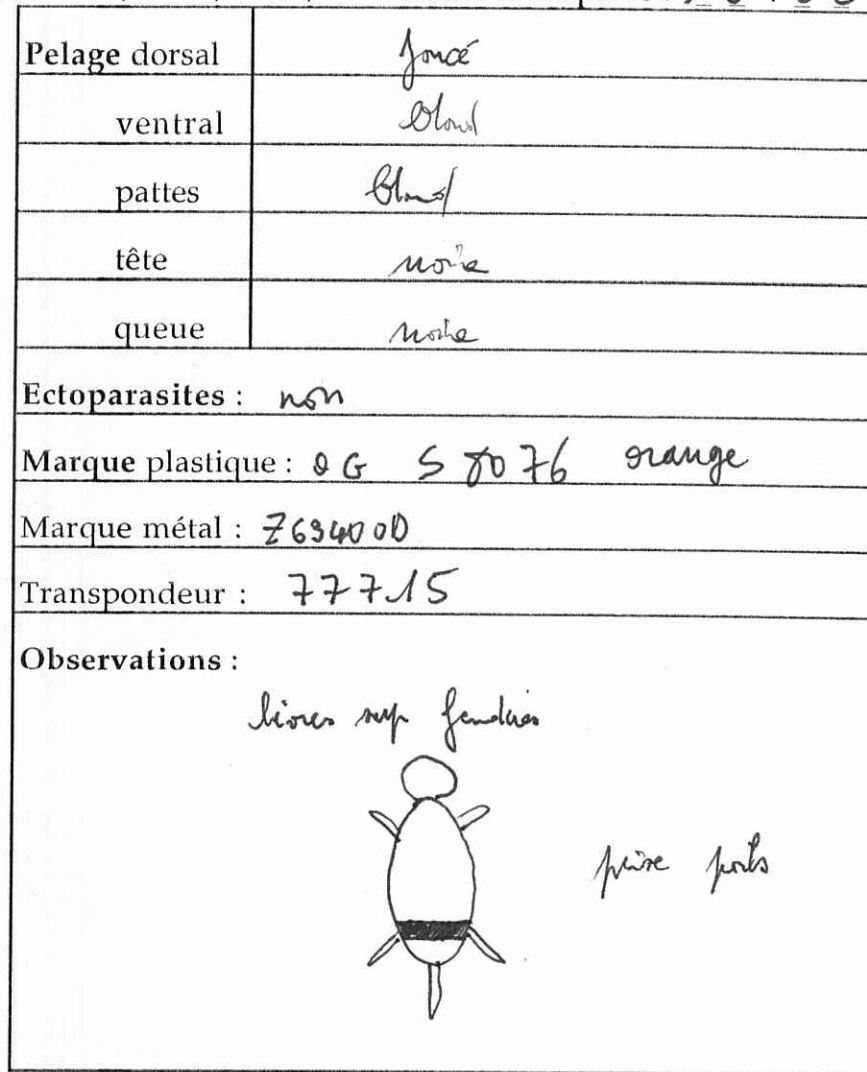 Pelage dorsal foncé
ventral blond
pattes blond
tête noire
queue noire
Ectoparasites : non
Marque plastique : OG S 8076 orange
Marque métal :
Transpondeur : 77715
Observations :
lèvres sup fendues
prise poils